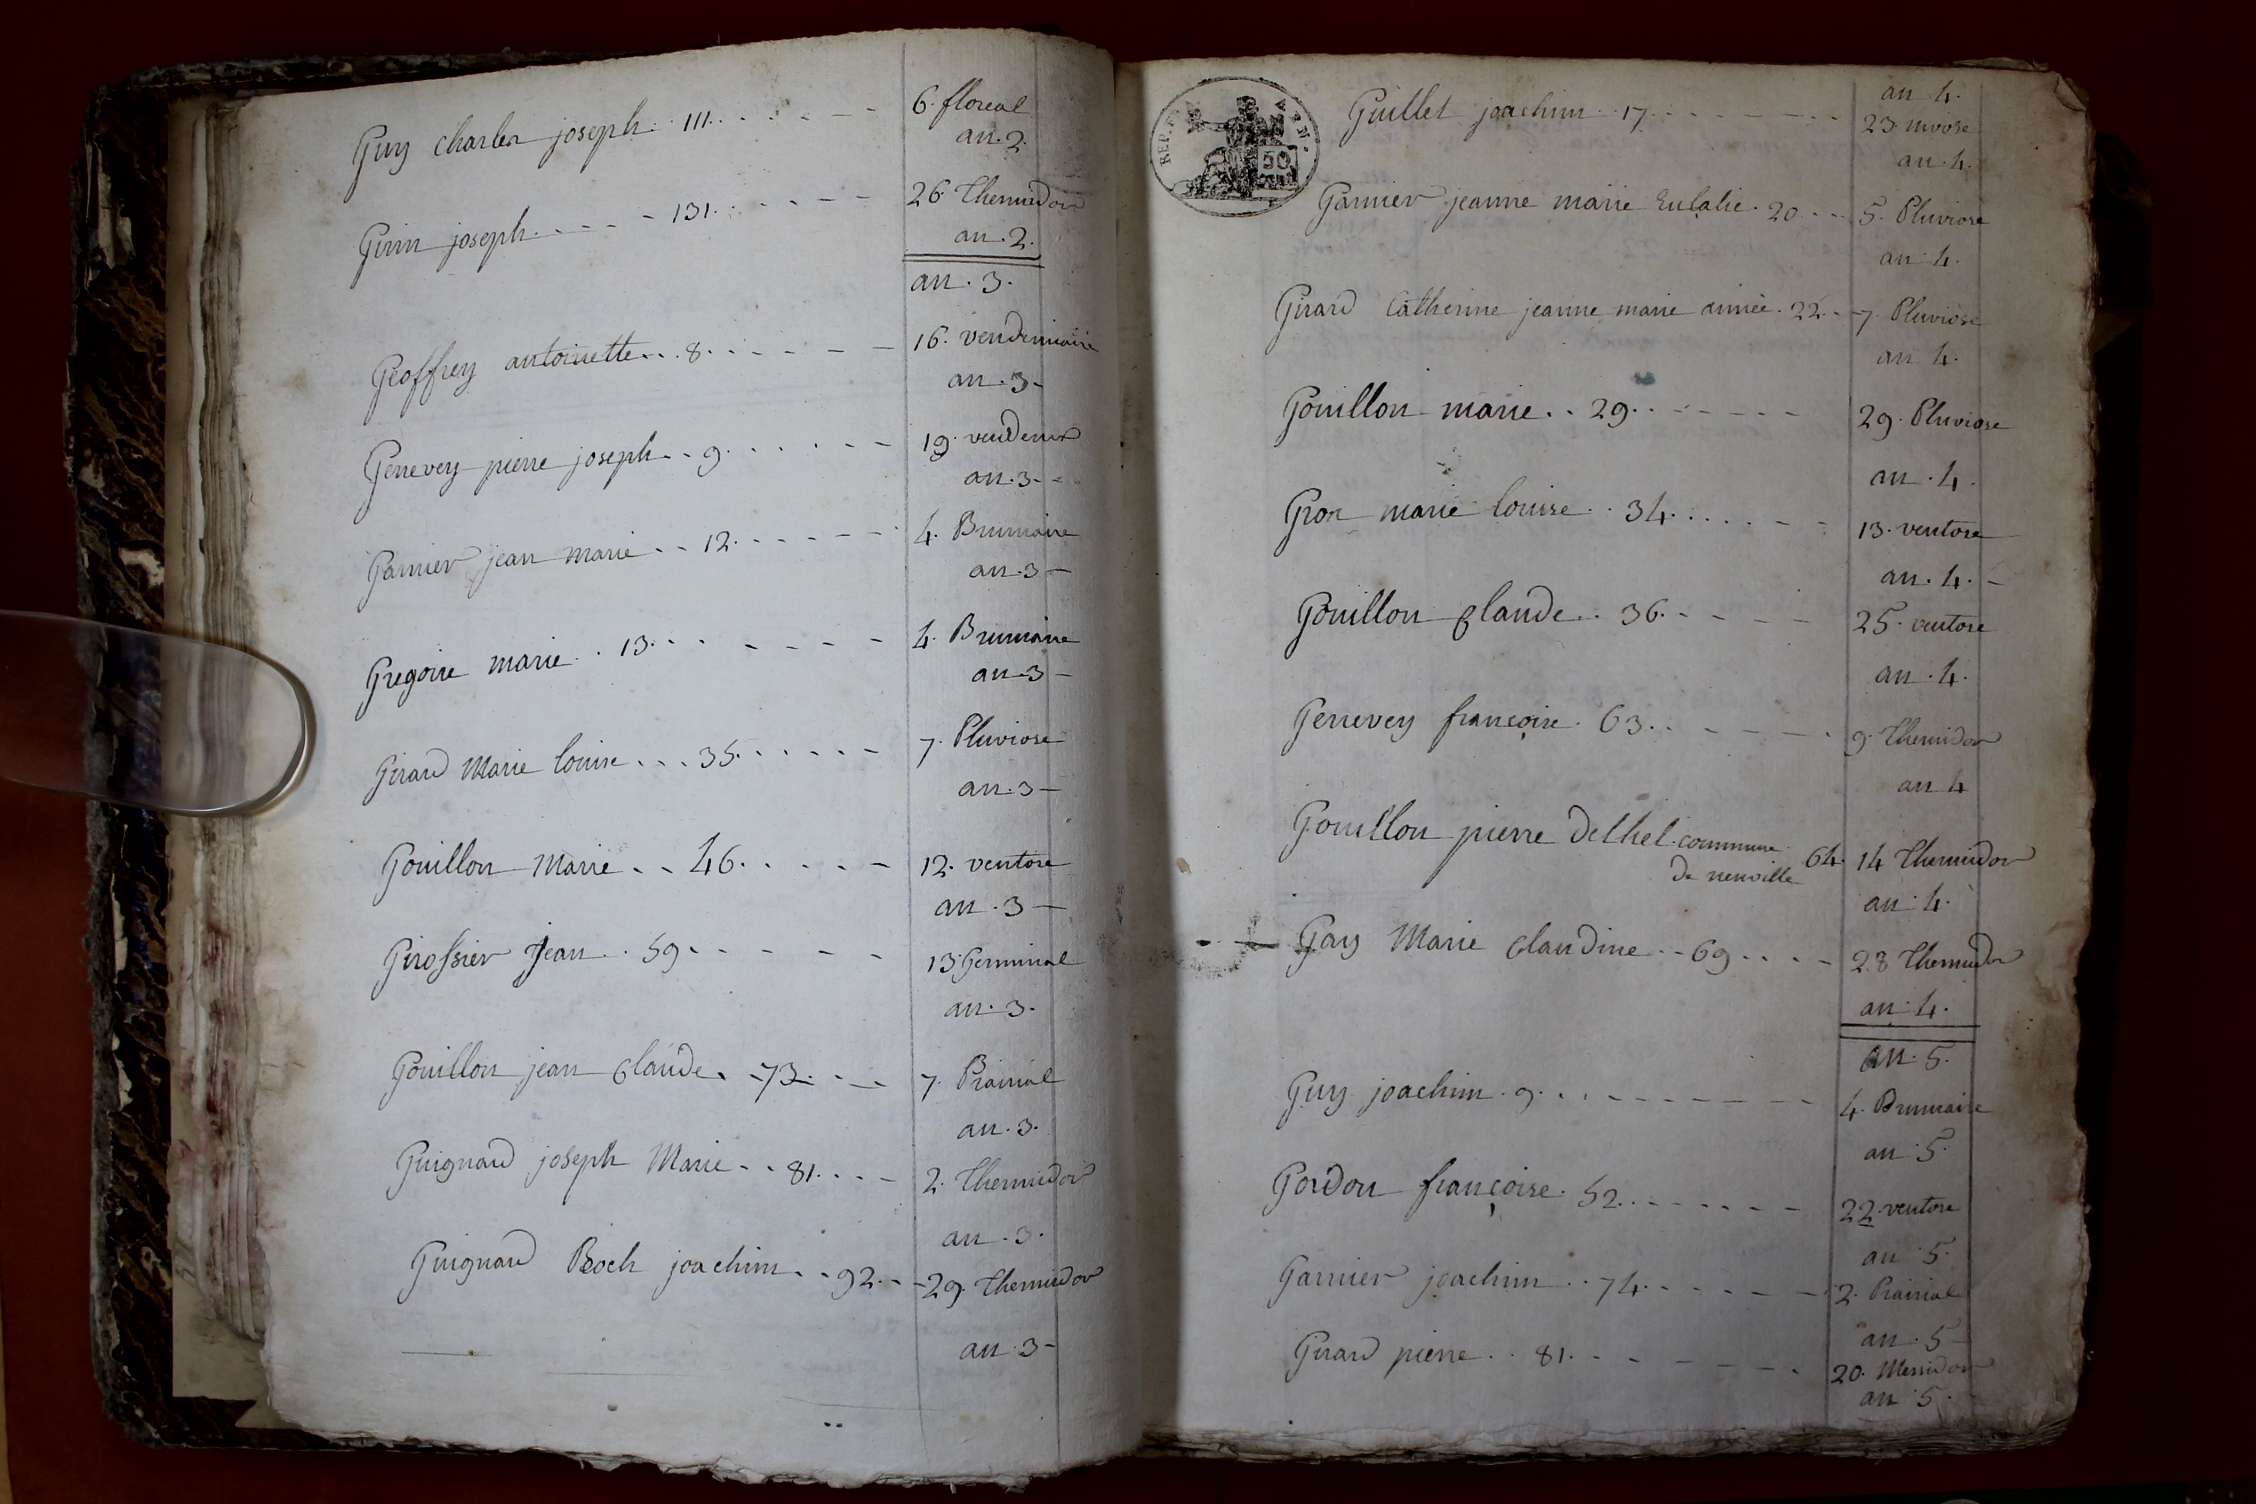 Guy charles joseph. 111. 6. floreal
an. 2.
Girin joseph. 131. 26 Thermidor
an. 2.
an. 3.
Geoffrey antoinette. 8. 16. vendemiaire
an. 3
Genevey pierre joseph. 9. 19. vendemr
an. 3
Garnier jean marie. 12. 4. Brumaire
an. 3
Gregoire marie. 13. 4. Brumaire
an 3
Girard Marie louise. 35. 7. Pluviose
an. 3
Gouillon Marie. 46. 12. ventose
an. 3
Girossier Jean. 59. 13. Germinal
an. 3.
Gouillon jean Claude. 73. 7. Prairial
an. 3.
Guignard joseph Marie. 81. 2. Thermidor
an. 3.
Guignard Roch joachim. 92. 29. Thermidor
an 3
REP. F.
50
an 4.
Guillet joachim. 17. 23 nivose
an. 4.
Garnier jeanne marie Eulalie. 20. 5. Pluviose
an 4.
Girard Catherine jeanne marie aimée. 22. 7. Pluviose
an 4.
Gouillon marie. 29. 29. Pluviose
an. 4.
Gros marie louise. 34. 13. ventose
an. 4.
Gouillon Claude. 36. 25. ventose
an. 4.
Genevey françoise. 63. 9. Thermidor
an 4
Gouillon pierre dethel. commune
de neuville 64. 14 Thermidor
an 4.
Gay Marie Claudine. 69. 28 Thermidor
an 4.
an. 5.
Guy joachim. 9. 4. Brumaire
an 5.
Gordon françoise. 52. 22. ventose
an 5.
Garnier joachim. 74. 2. Prairial
an. 5
Girard pierre. 81. 20. Messidor
an 5.